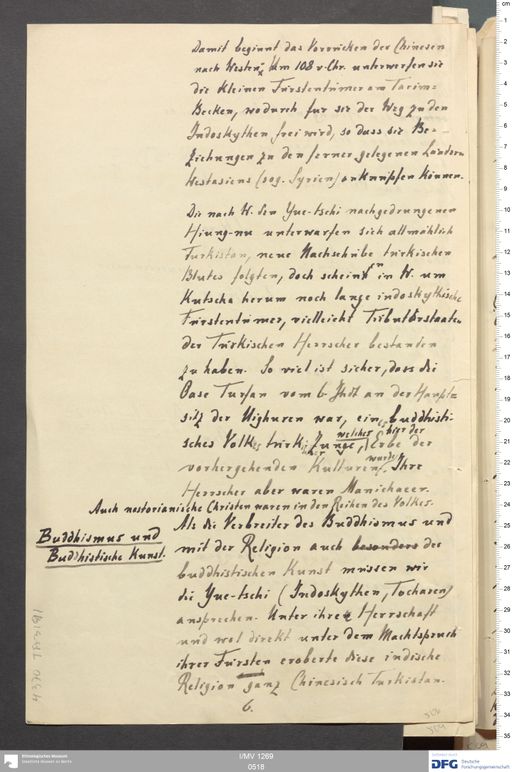 Damit beginnt das Vorrücken der Chinesen
nach Westen. Um 108 v. Chr. unterwerfen sie
die kleinen Fürstentümer am Tarim-
Becken, wodurch für sie der Weg zu den
Indoskythen frei wird, so dass sie Be-
ziehungen zu den ferner gelegenen Ländern
Westasiens (sog. Syrien) anknüpfen können.
Die nach W. den Yue-tschi nachgedrungenen
Hiung-nu unterwarfen sich allmählich
Turkistan, neue Nachschübe türkischen
Blutes folgten, doch scheinen in W. um
Kutscha herum noch lange indoskythische
Fürstentümer, vielleicht Tributärstaaten
der Türkischen Herrscher bestanden
zu haben. So viel ist sicher, dass die
Oase Turfan vom 6. Jhdt an der Haupt=
sitz der Uighuren war, eines buddhisti-
sches Volkes türkischer Zunge, welches hier der Erbe der
vorhergehenden Kulturen wurde. Ihre
Herrscher aber waren Manichaeer.
Auch nestorianische Christen waren in den Reihen des Volkes.
Buddhismus und
Buddhistische Kunst.
Als die Verbreiter des Buddhismus und
mit der Religion auch besonders der
buddhistischen Kunst müssen wir
die Yue-tschi (Indoskythen, Tocharen)
ansprechen. Unter ihrer Herrschaft
und wol direkt unter dem Machtspruch
ihrer Fürsten eroberte diese indische
Religion ganz Chinesisch Turkistan.
6.
Ethnologisches Museum
Staatliche Museen zu Berlin
I/MV 1269
0518
DFG Deutsche
Forschungsgemeinschaft